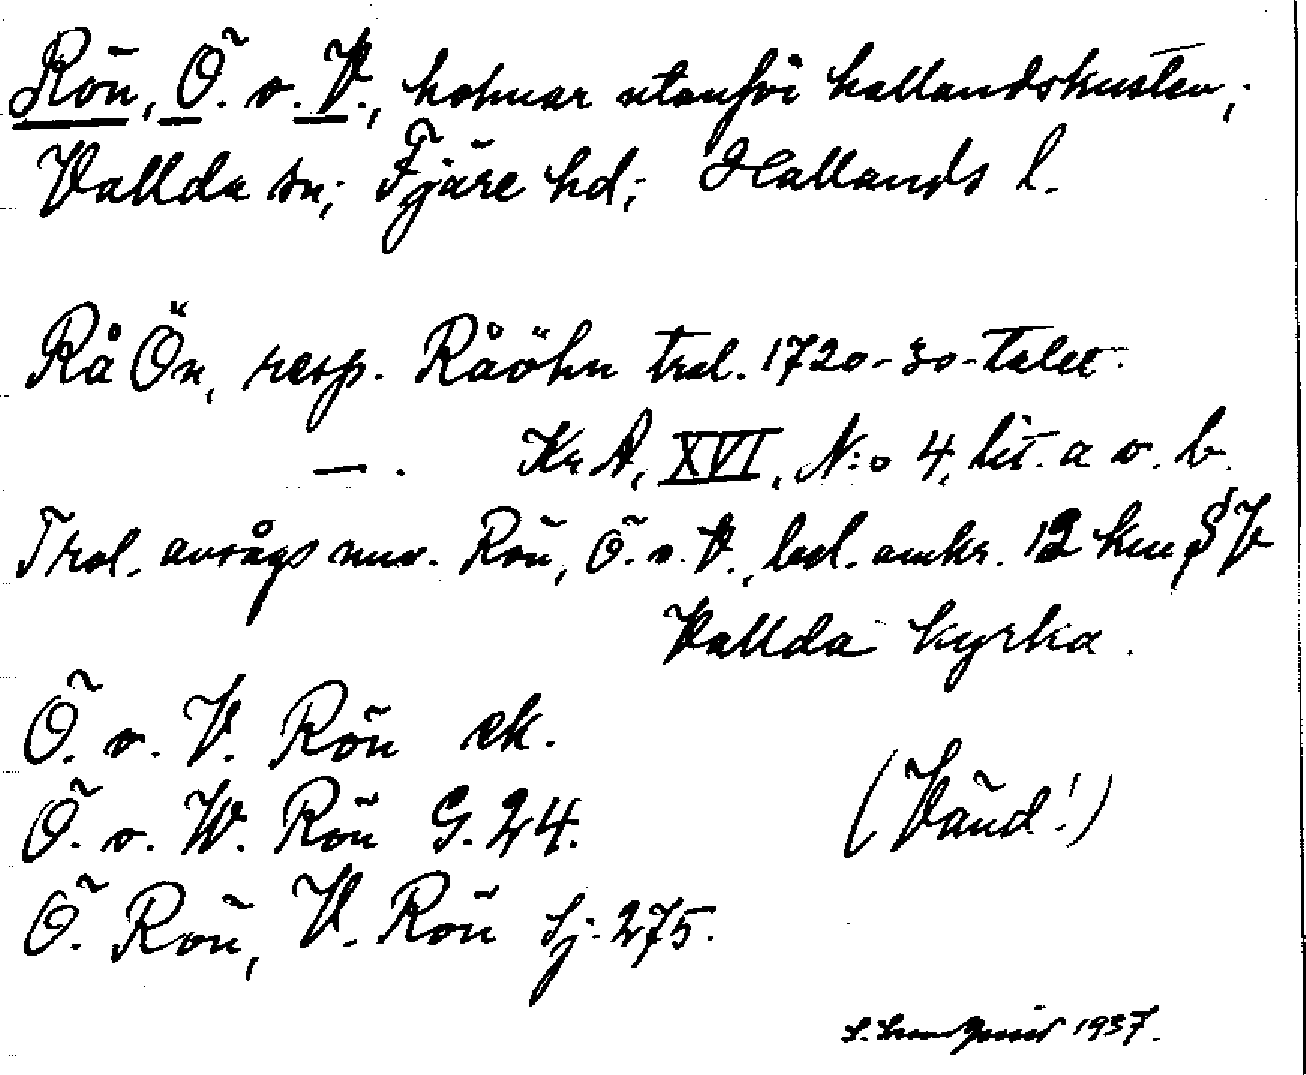 Rön, Ö. o. V., holmar utanför hallandskusten;
Vallda sn; Fjäre hd; Hallands l.
RåÖn, resp. Råöhn trol. 1720-30-talet.
—. Kr A, XVI, N:o 4, lit. a o. b.
Trol. avsågs nuv. Rön, Ö. o. V., bel. omkr. 12 km S V
Vallda kyrka.
Ö. o. V. Rön ek.
Ö. o. W. Rön G. 24.
(Vänd!)
Ö. Rön, V. Rön Sj. 275.
1937.